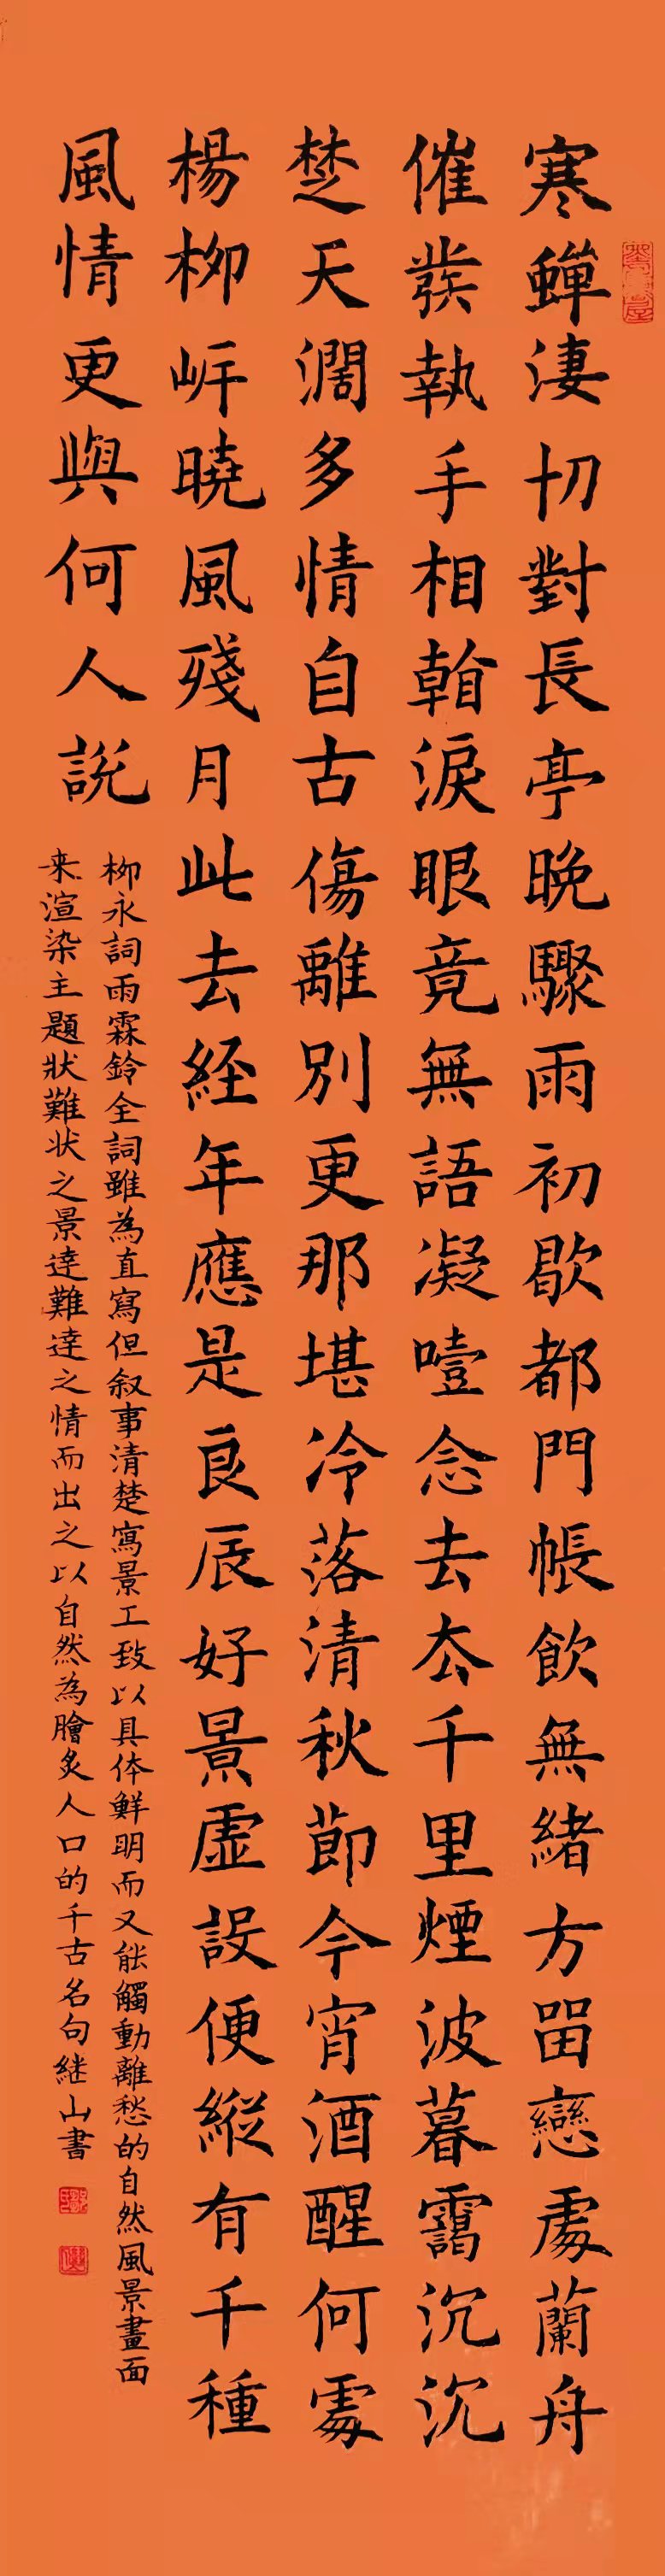 寒蟬淒切對長亭晚驟雨初歇都門帳飲無緒方留戀處蘭舟
催發執手相看淚眼竟無語凝噎念去去千里煙波暮靄沉沉
楚天濶多情自古傷離別更那堪冷落清秋節今宵酒醒何處
楊柳岸曉風殘月此去經年應是良辰好景虛設便縱有千種
風情更與何人説
柳永詞雨霖鈴全詞雖為直寫但叙事清楚寫景工致以具体鮮明而又能觸動離愁的自然風景畫面
来渲染主題狀難状之景達難達之情而出之以自然為膾炙人口的千古名句継山書